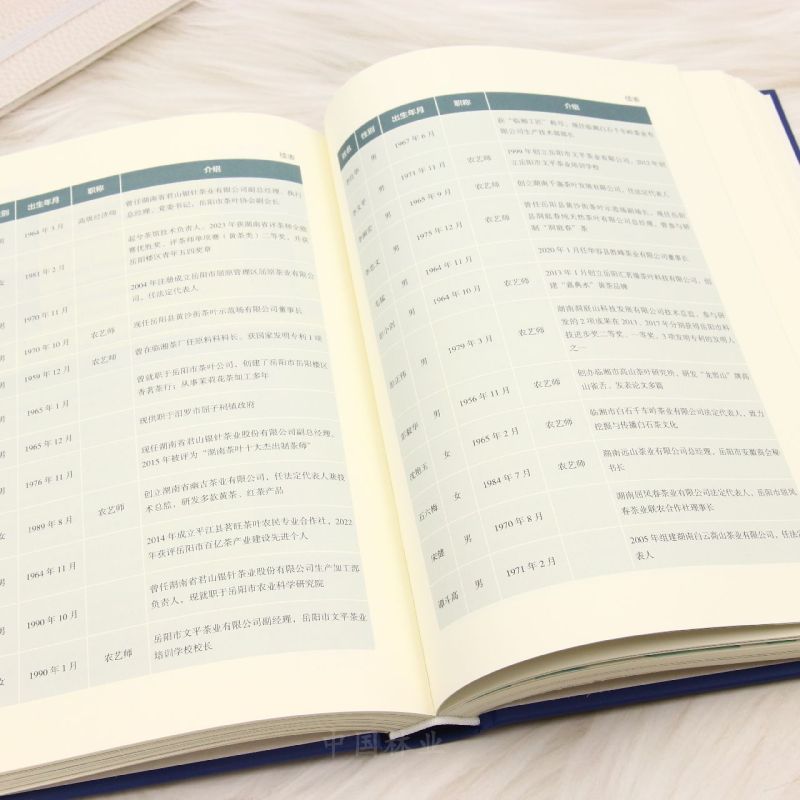 续表
别 出生年月 职称 介绍
男 1964年3月 高级经济师 曾任湖南省君山银针茶业有限公司副总经理、执行
总经理、党委书记，岳阳市茶叶协会副会长
女 1981年2月 起兮茶馆技术负责人，2023年获湖南省评茶师全能
赛优胜奖、评茶师单项赛（黄茶类）二等奖，并获
岳阳楼区青年五四奖章
2004年注册成立岳阳市屈原管理区屈原茶业有限公
司，任法定代表人
男 1970年11月 现任岳阳县黄沙街茶叶示范场有限公司董事长
男 1970年10月 农艺师 曾在临湘茶厂任原料科科长，获国家发明专利1项
男 1959年12月 农艺师 曾就职于岳阳市茶叶公司，创建了岳阳市岳阳楼区
香茗茶行；从事茉莉花茶加工多年
男 1965年1月 现供职于汨罗市屈子祠镇政府
男 1965年12月 现任湖南省君山银针茶业股份有限公司副总经理，
2015年被评为“湖南茶叶十大杰出制茶师”
男 1976年11月 创立湖南省幽吉茶业有限公司，任法定代表人兼技
术总监，研发多款黄茶、红茶产品
女 1989年8月 农艺师 2014年成立平江县茗旺茶叶农民专业合作社，2022
年获评岳阳市百亿茶产业建设先进个人
男 1964年11月 曾任湖南省君山银针茶业股份有限公司生产加工部
负责人，现就职于岳阳市农业科学研究院
男 1990年10月
女 1990年1月 农艺师 岳阳市文平茶业有限公司副经理，岳阳市文平茶业
培训学校校长
续表
姓名 性别 出生年月 职称 介绍
男 1967年6月 获“临湘工匠”称号，现任临湘白石千车岭茶业有
限公司生产技术部部长
李文平 男 1971年11月 农艺师 1999年创立岳阳市文平茶业有限公司，2012年创
立岳阳市文平茶业培训学校
男 1965年9月 农艺师 创立湖南千盏茶叶发展有限公司，任法定代表人
男 1975年12月 曾任岳阳县黄沙街茶叶示范场副场长，现任岳阳
县洞庭春纯天然茶叶有限公司总经理，曾参与研
制“洞庭春”茶
男 1964年11月 2020年1月任华容县胜峰茶业有限公司董事长
男 1964年10月 农艺师 2013年1月创立岳阳汇茗缘茶叶科技有限公司，创
建“嘉典永”黄茶品牌
男 1979年3月 农艺师 湖南洞庭山科技发展有限公司技术总监，参与研
发的2项成果在2013、2017年分别获得岳阳市科
技进步奖二等奖、一等奖，3项发明专利的发明人
之一
男 1956年11月 农艺师 创办临湘市高山茶叶研究所，研发“龙窖山”牌高
山雀舌，发表论文多篇
女 1965年2月 农艺师 临湘市白石千车岭茶业有限公司法定代表人，致力
挖掘与传播白石茶文化
伍六梅 女 1984年7月 农艺师 湖南远山茶业有限公司总经理，岳阳市安徽商会秘
书长
宋健 男 1970年8月 湖南屈风春茶业有限公司法定代表人，岳阳市屈风
春茶业联农合作社理事长
谭斗高 男 1971年2月 2005年组建湖南白云高山茶业有限公司，任法定代
表人
中国林业